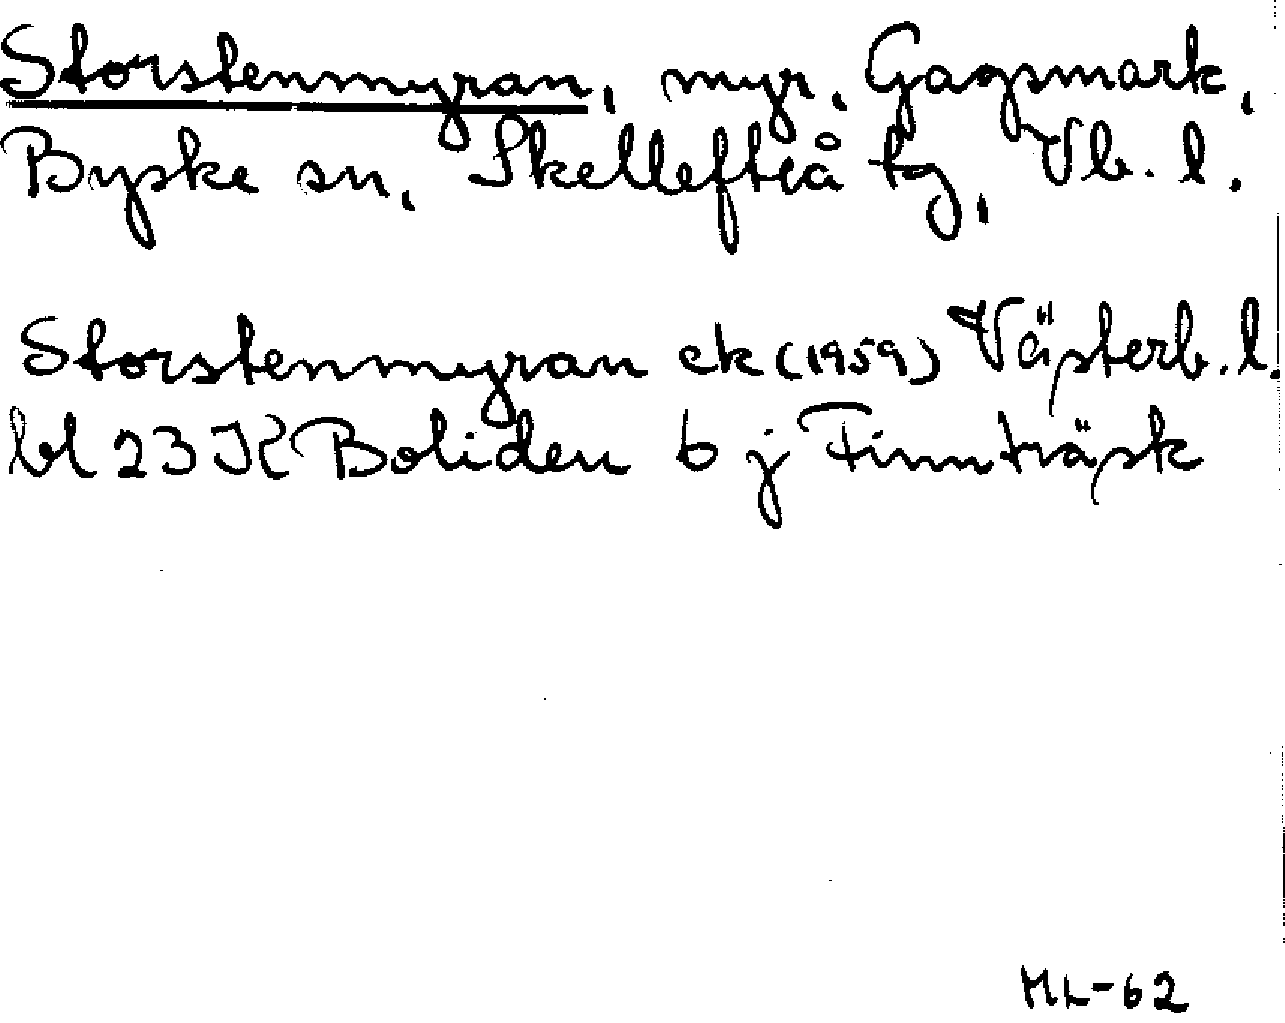 Storstenmyran, myr, Gagsmark,
Byske sn, Skellefteå tg, Vb. l.
Storstenmyran ek (1959) Västerb. l.
bl 23 K Boliden 6 j Finnträsk
ML-62